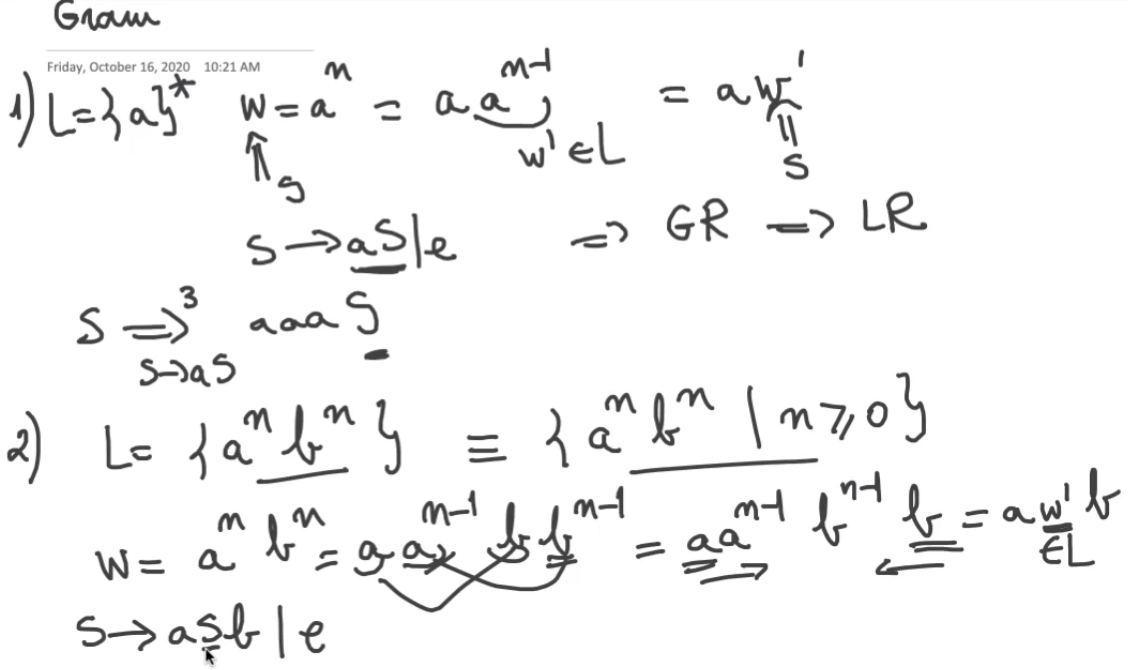 Gram
Friday, October 16, 2020 10:21 AM
1) L={a}* w=aⁿ = a aⁿ⁻¹ = a w'
w'∈L || S
⇑ S
S→aS|e => GR => LR
S =>³ aaaS
S→aS
2) L= {aⁿbⁿ} ≡ {aⁿbⁿ | n⩾0}
w= aⁿbⁿ = a aⁿ⁻¹ b bⁿ⁻¹ = aaⁿ⁻¹ bⁿ⁻¹ b = a w' b
∈L
S→aSb|e